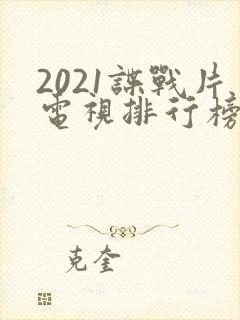 2021諜戰片
電視排行榜
克奎